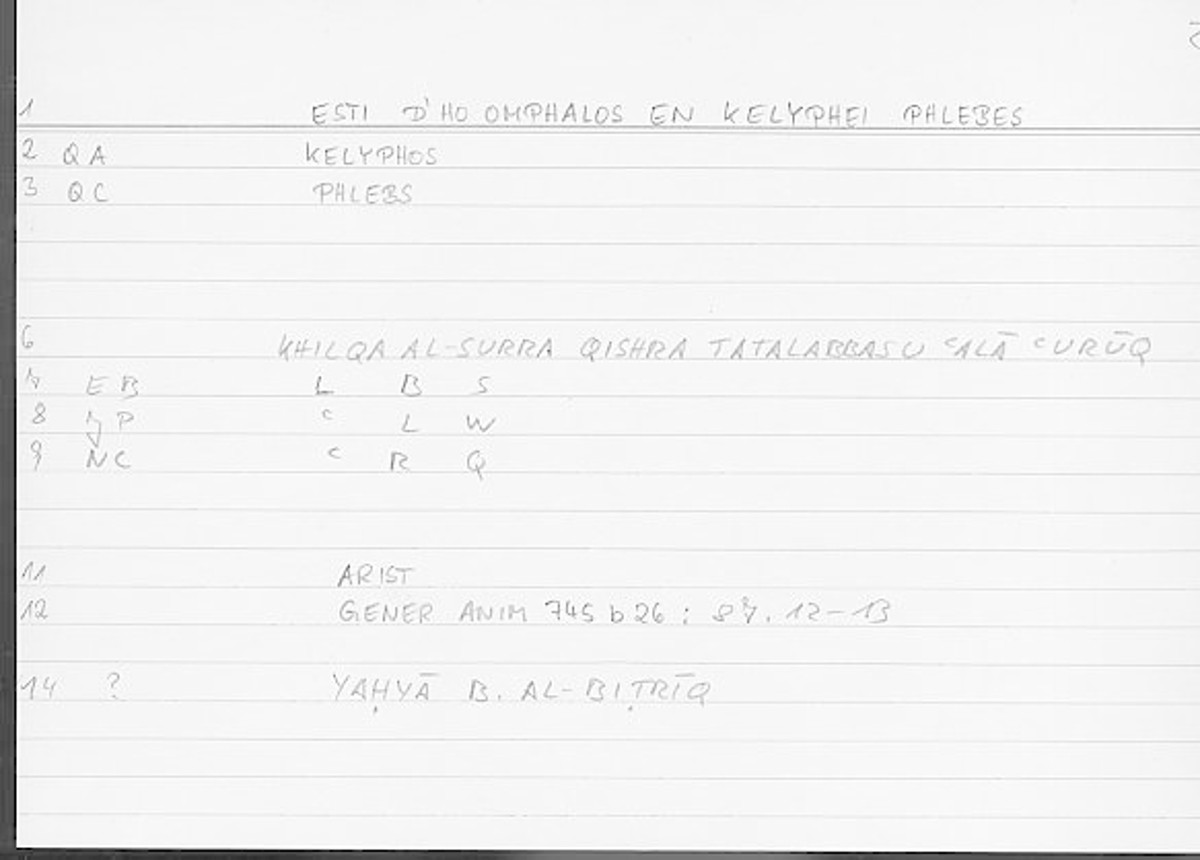 1 ESTI D'HO OMPHALOS EN KELYPHEI PHLEBES
2 QA KELYPHOS
3 QC PHLEBS
6 KHILQA AL-SURRA QISHRA TATALABBASU ᶜALĀ ᶜURŪQ
7 EB L B S
8 JP ᶜ L W
9 NC ᶜ R Q
11 ARIST
12 GENER ANIM 745 b 26 ; 87. 12-13
14 ? YAḤYĀ B. AL-BIṬRĪQ